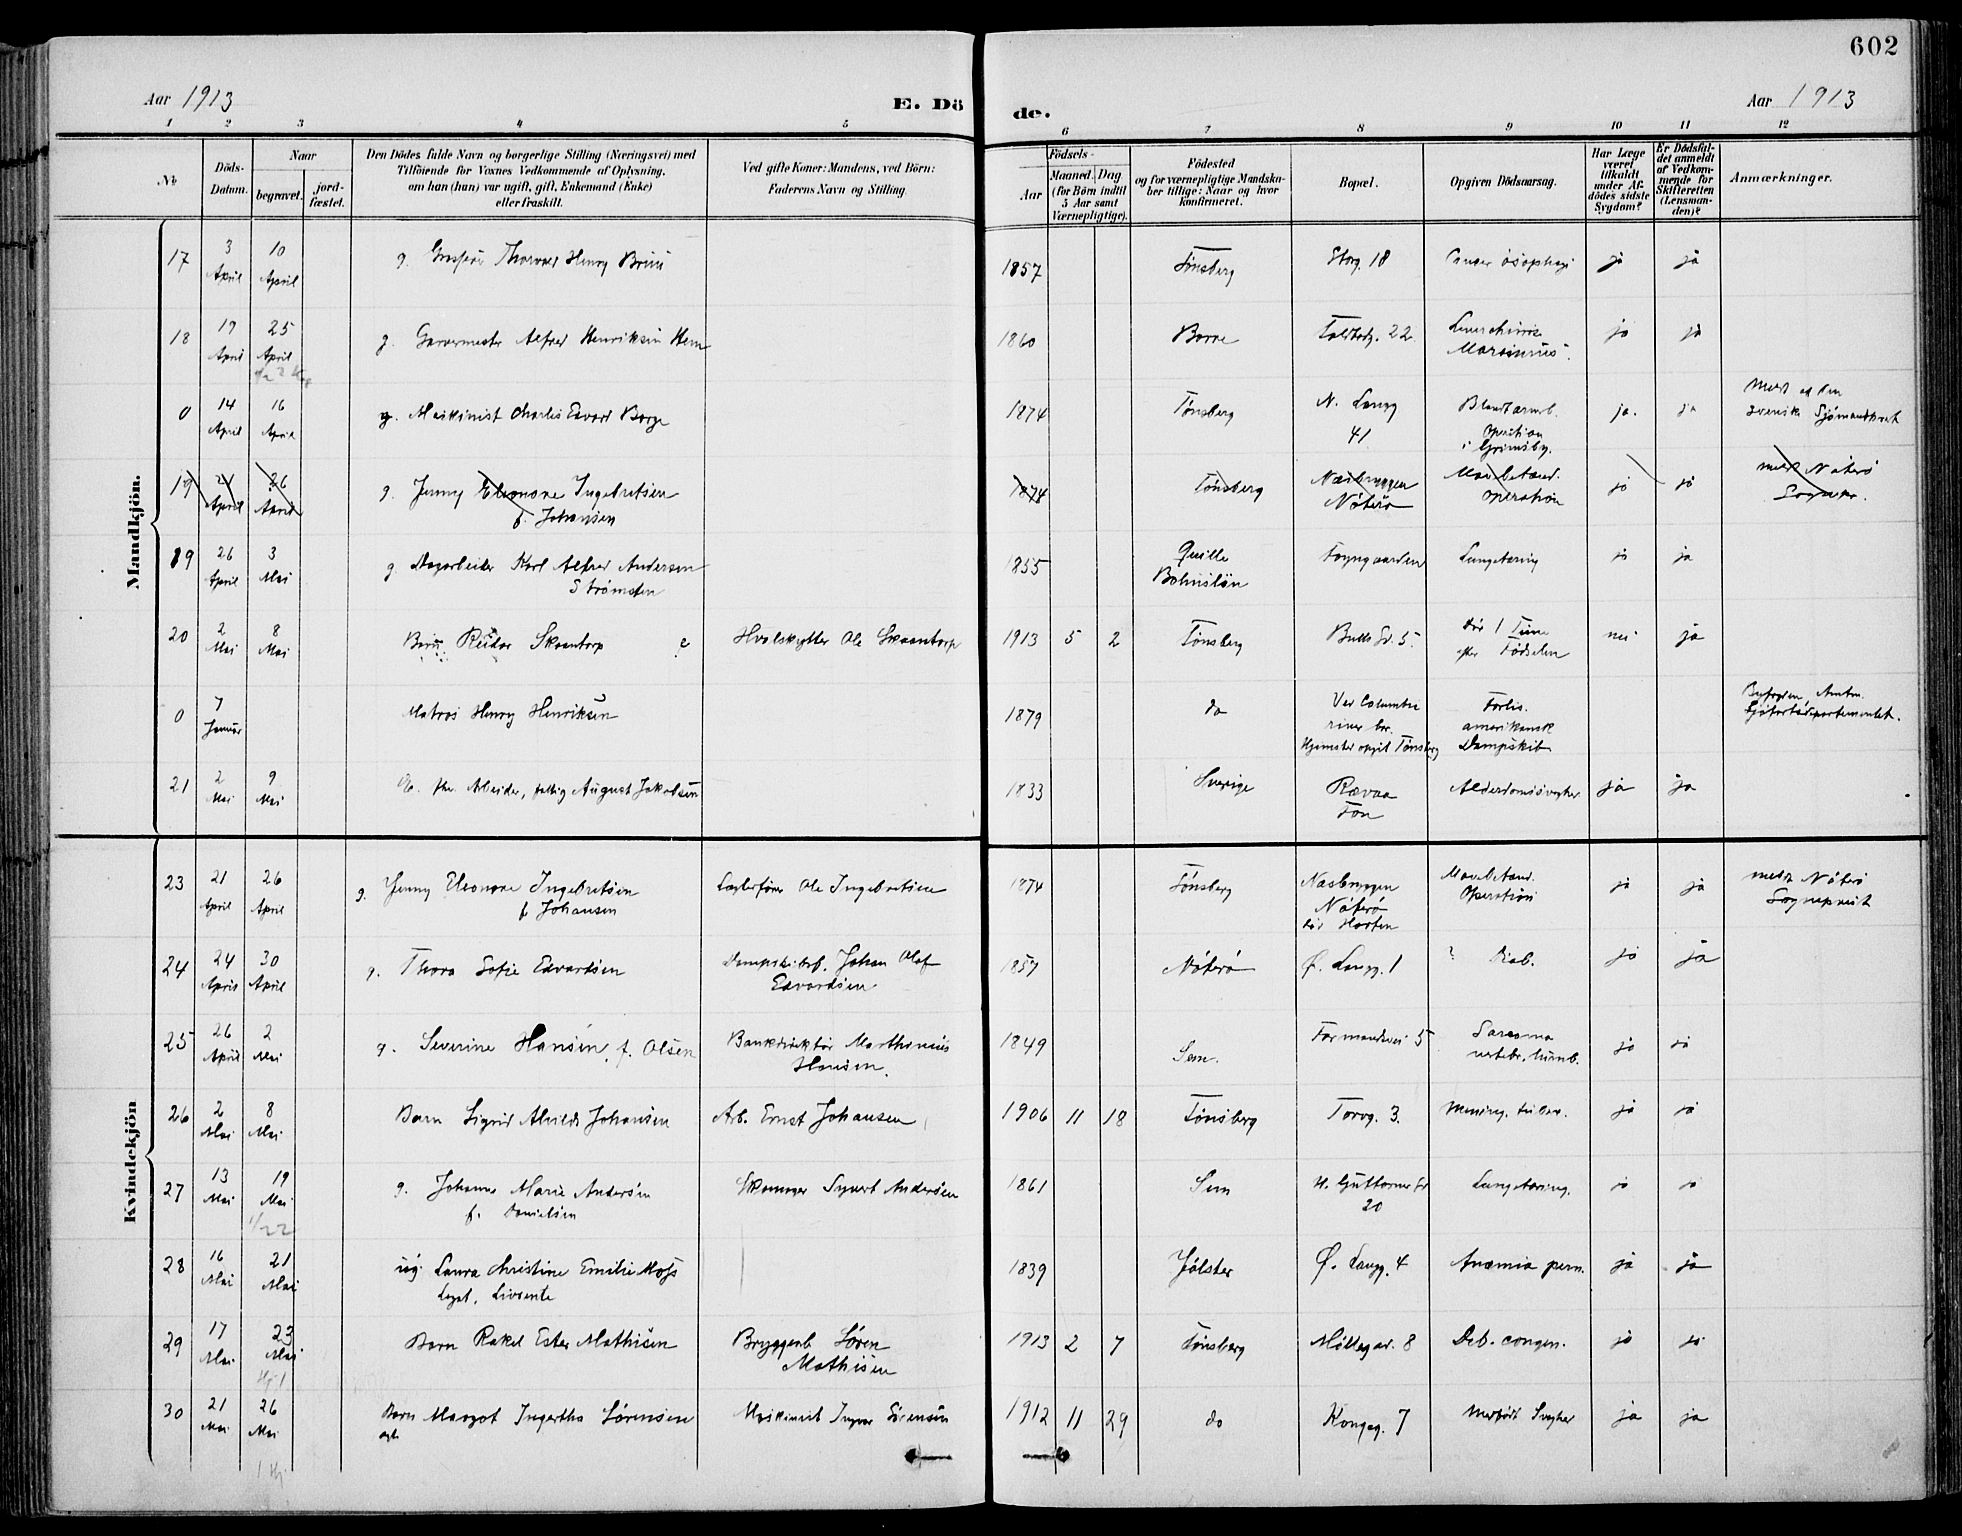 602
Aar 1913
E. Dö
de.
Aar 1913
1 2 3 4 5 6 7 8 9 10 11 12
No
Döds-
Datum.
Naar
begravet.
jord-
fæstet.
Den Dödes fulde Navn og borgerlige Stilling (Næringsvei) med
Tilföiende for Voxnes Vedkommende af Oplysning,
om han (hun) var ugift, gift, Enkemand (Enke)
eller fraskilt.
Ved gifte Koner: Mandens, ved Börn:
Faderens Navn og Stilling.
Födsels-
Aar
Maaned. Dag
(for Börn indtil
5 Aar samt
Værnepligtige).
Födested
og for værnepligtige Mandska-
ber tillige: Naar og hvor
konfirmeret.
Bopæl.
Opgiven Dödsaarsag.
Har Læge
været
tilkaldt
under Af-
dödes sidste
Sygdom?
Er Dödsfal-
det anmeldt
af Vedkom-
mende for
Skifteretten
(Lensman-
den)?
Anmærkninger.
Mandkjön.
17 3 April 10 April g. Henry Bruu 1857 Tønsberg Storg. 18 Cancer øsophagi ja ja
18 19 April 25 April g. Garvermester Alfred Henriksen Hem 1860 Borre Toldbodg. 22 ja ja
0 14 April 16 April g. Maskinist Charles Edvard Borge 1874 Tønsberg N. Langg 41 Blindtarmb. Operation i Grimsby. ja. ja meldt af den svensk Sjømandsprest
19 21 April 26 April g. Jenny Eleonore Ingebretsen f. Johansen 1874 Tønsberg Næsbryggen Nøterø Mavebetænd. Operation ja ja meldt Nøterø Sognepr.
19 26 April 3 Mai g. Dagarbeider Karl Alfred Andersen Strømsten 1855 Quille Bohuslän Foyngaarden Lungetæring ja ja
20 2 Mai 8 Mai Barn Reidar Skaantorp e Hvalskytter Ole Skaantorp 1913 5 2 Tønsberg Bulls Gd. 5. død 1 Time efter Fødselen nei ja
0 7 Januar Matros Henry Henriksen 1879 do Ved Columbia river bar. Hjemsted opgit Tønsberg Forlis. amerikansk Dampskib
21 2 Mai 9 Mai E. fhv. Arbeider, fattig August Jakobsen 1833 Sverige Rævaa Fon Alderdomssvaghed ja ja
Kvindekjön
23 21 April 26 April g. Jenny Eleonore Ingebretsen f. Johansen Ole Ingebretsen 1874 Tønsberg Næsbryggen Nøterø død Horten Mavebetænd. Operation ja ja meldt Nøterø Sogneprest
24 24 April 30 April g. Thora Sofie Edvardsen Johan Olaf Edvardsen 1857 Nøterø Ø. Langg. 1 ? Diab. ja ja
25 26 April 2 Mai g. Severine Hansen, f. Olsen Bankdirektør Marthinius Hansen. 1849 Sem. Farmandsvei 5 Sarcoma vertebr. lumb. ja ja
26 2 Mai 8 Mai Barn Sigrid Alvilde Johansen Arb. Ernst Johansen 1906 11 18 Tønsberg Torvg. 3. Mening. tuberc. ja ja
27 13 Mai 19 Mai g. Johanne Marie Andersen f. Danielsen Skomager Syvert Andersen 1861 Sem H. Guttorms Gd 20 Lungetæring. ja ja
28 16 Mai 21 Mai ug. Laura Christine Emilie Moss Legat, Livrente 1839 Jølster Ø. Langg. 4 Anæmia pern. ja ja
29 17 Mai 23 Mai Barn Rakel Ester Mathisen Bryggearb Søren Mathisen 1913 2 7 Tønsberg Møllegad. 8 Deb. congen. ja ja
30 21 Mai 26 Mai Barn Margot Ingertha Sørensen Maskinist Ingvar Sørensen 1912 11 29 do Kongeg. 7 medfødt Svaghed ja ja